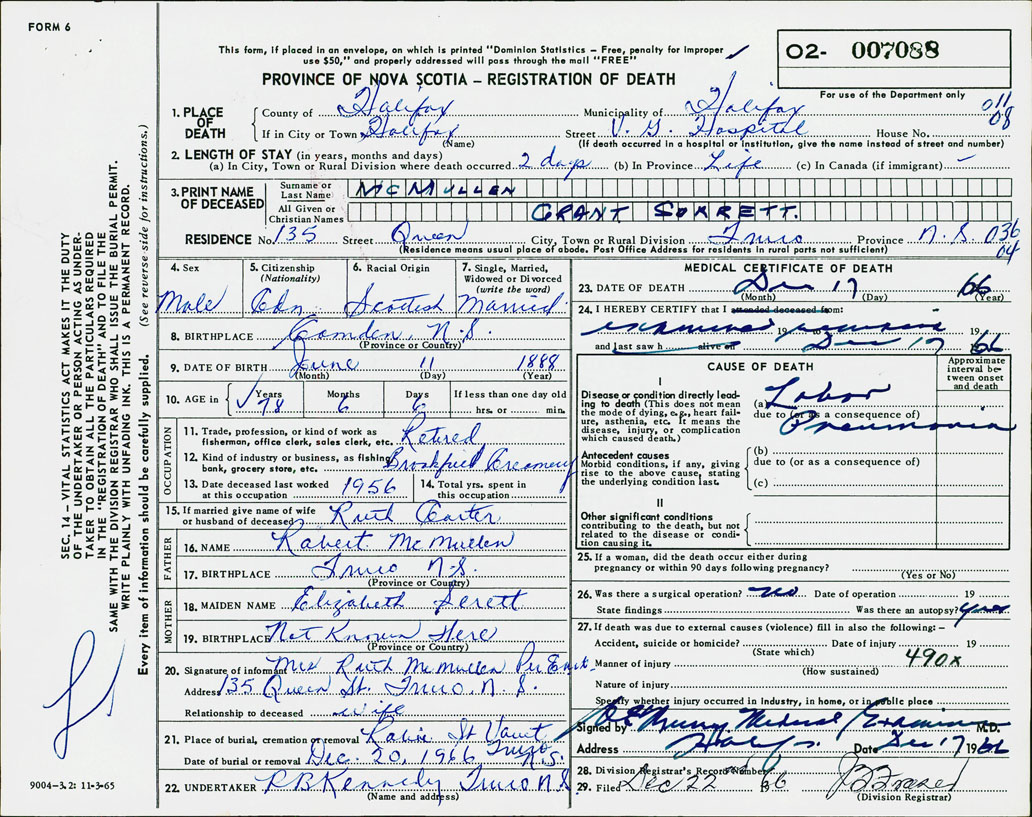 FORM 6
This form, if placed in an envelope, on which is printed "Dominion Statistics – Free, penalty for improper
use $50," and properly addressed will pass through the mail "FREE"
O2- 007088
For use of the Department only
PROVINCE OF NOVA SCOTIA – REGISTRATION OF DEATH
011
08
1. PLACE OF DEATH
County of Halifax Municipality of Halifax
If in City or Town Halifax Street V. G. Hospital House No.
(Name) (If death occurred in a hospital or institution, give the name instead of street and number)
2. LENGTH OF STAY (in years, months and days)
(a) In City, Town or Rural Division where death occurred 2 days (b) In Province Life (c) In Canada (if immigrant) –
3. PRINT NAME OF DECEASED
Surname or Last Name MCMULLEN
All Given or Christian Names GRANT SORRETT.
RESIDENCE No. 135 Street Queen City, Town or Rural Division Truro Province N.S. 036
04
(Residence means usual place of abode. Post Office Address for residents in rural parts not sufficient)
4. Sex Male
5. Citizenship (Nationality) Cdn
6. Racial Origin Scottish
7. Single, Married, Widowed or Divorced (write the word) Married
8. BIRTHPLACE Camden, N.S.
(Province or Country)
9. DATE OF BIRTH June 11 1888
(Month) (Day) (Year)
10. AGE in Years 78 Months 6 Days 6 If less than one day old hrs. or min.
OCCUPATION
11. Trade, profession, or kind of work as fisherman, office clerk, sales clerk, etc. Retired
12. Kind of industry or business, as fishing, bank, grocery store, etc. Brookfield Creamery
13. Date deceased last worked at this occupation 1956
14. Total yrs. spent in this occupation
15. If married give name of wife or husband of deceased Ruth Carter
FATHER
16. NAME Robert McMullen
17. BIRTHPLACE Truro N.S.
(Province or Country)
MOTHER
18. MAIDEN NAME Elizabeth Serett
19. BIRTHPLACE Not Known Here
(Province or Country)
20. Signature of informant Mrs Ruth McMullen Per
Address 135 Queen St. Truro, N.S.
Relationship to deceased wife
21. Place of burial, cremation or removal Robie St Vault
Truro N.S.
Date of burial or removal Dec. 20, 1966
22. UNDERTAKER R B Kennedy Truro N.S.
(Name and address)
MEDICAL CERTIFICATE OF DEATH
23. DATE OF DEATH Dec 17 66
(Month) (Day) (Year)
24. I HEREBY CERTIFY that I attended deceased from:
examined 19 to remains 19
and last saw h alive on Dec 17 1966
CAUSE OF DEATH
Approximate interval between onset and death
I
Disease or condition directly leading to death (This does not mean the mode of dying, e.g., heart failure, asthenia, etc. It means the disease, injury, or complication which caused death.)
(a) Lobar
due to (or as a consequence of)
Pneumonia
Antecedent causes
Morbid conditions, if any, giving rise to the above cause, stating the underlying condition last.
(b)
due to (or as a consequence of)
(c)
II
Other significant conditions
contributing to the death, but not related to the disease or condition causing it.
25. If a woman, did the death occur either during
pregnancy or within 90 days following pregnancy?
(Yes or No)
26. Was there a surgical operation? no Date of operation 19
State findings Was there an autopsy? yes
27. If death was due to external causes (violence) fill in also the following:–
Accident, suicide or homicide? Date of injury 19
(State which)
Manner of injury 490x
(How sustained)
Nature of injury
Specify whether injury occurred in Industry, in home, or in public place
Signed by Murray Medical Examiner M.D.
Address Date Dec 17 1966
28. Division Registrar's Record Number
29. Filed Dec 22 66 Fraser
(Division Registrar)
SEC. 14 – VITAL STATISTICS ACT MAKES IT THE DUTY
OF THE UNDERTAKER OR PERSON ACTING AS UNDER-
TAKER TO OBTAIN ALL THE PARTICULARS REQUIRED
IN THE "REGISTRATION OF DEATH" AND TO FILE THE
SAME WITH THE DIVISION REGISTRAR WHO SHALL ISSUE THE BURIAL PERMIT.
WRITE PLAINLY WITH UNFADING INK. THIS IS A PERMANENT RECORD.
Every item of information should be carefully supplied. (See reverse side for instructions.)
9004–3.2: 11-3-65